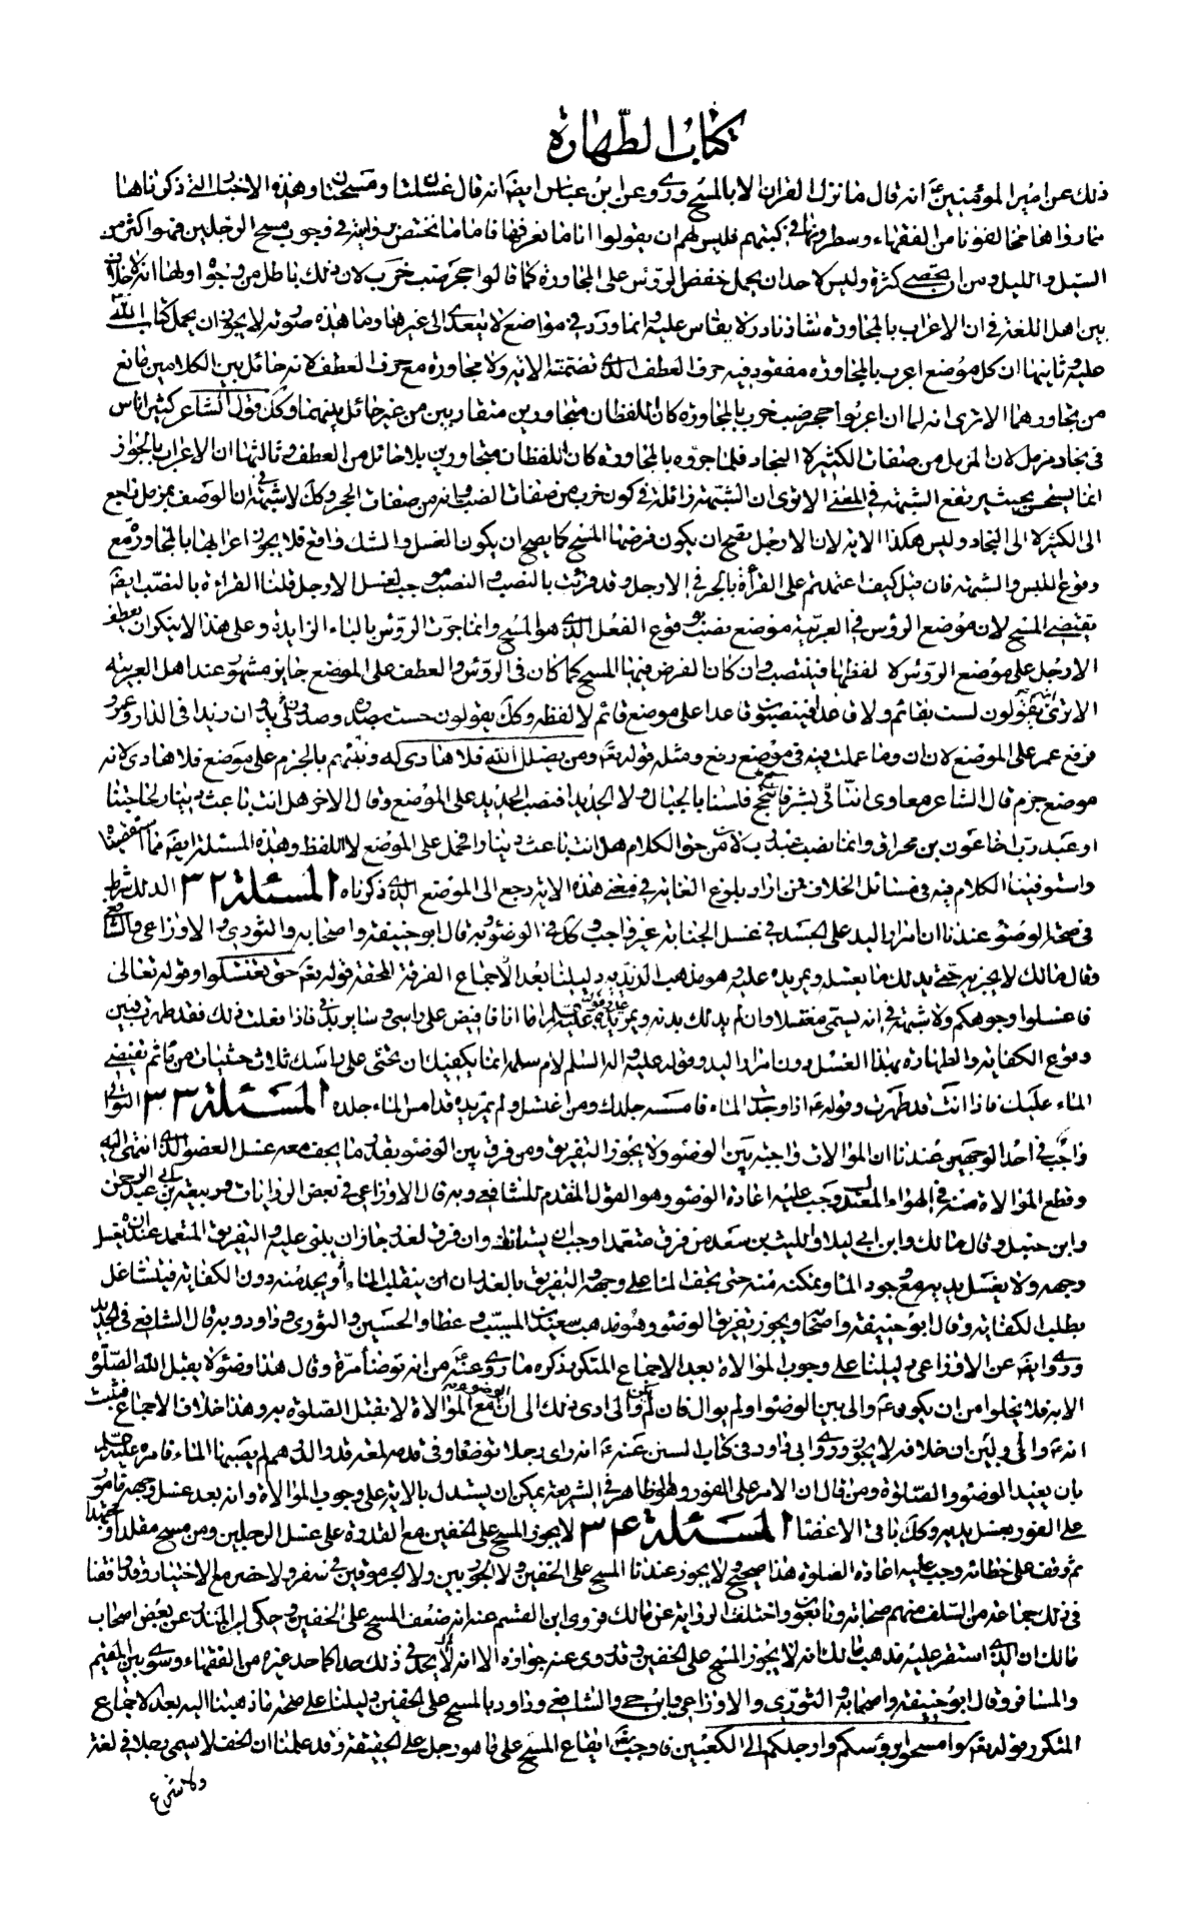 كتاب الطهارة
ذلك عن امير المؤمنين ع انه قال ما نزل القران الا بالمسح وروى عن ابن عباس ايضا انه قال غسلتان ومسحتان وهذه الاخبار التي ذكرناها
مما رواها مخالفونا من الفقهاء وسطروها في كتبهم فليس لهم ان يقولوا انا ما نعرفها فاما ما نختص بروايته في وجوب مسح الرجلين فهو اكثر من
السيل والليل ومن ان يحصى كثرة وليس لاحد ان يحمل خفض الرؤس على المجاورة كما قالوا حجر ضب خرب لان ذلك باطل من وجوه اولها انه لا خلاف
بين اهل اللغة في ان الاعراب بالمجاورة شاذ نادر لا يقاس عليه وانما ورد في مواضع لا يتعدى الى غيرها وما هذه صورته لا يجوز ان يحمل كتاب الله
عليه وثانيها ان كل موضع اعرب بالمجاورة مفقود فيه حرف العطف الذي تضمنته الاية ولا مجاورة مع حرف العطف لانه حائل بين الكلامين مانع
من تجاورهما الا ترى انه لما ان اعربوا جحر ضب خرب بالمجاورة كان اللفظان متجاورين متقاربين من غير حائل بينهما وكك قول الشاعر كبير اناس
في بجاد مزمل لان المزمل من صفات الكبير لا البجاد فلما جروه بالمجاورة كان اللفظان متجاورين بلا حائل من العطف وثالثها ان الاعراب بالجوار
انما يستحسن بحيث يرتفع الشبهة في المعنى الا ترى ان الشبهة زائلة في كون خرب من صفات الضب وانه من صفات الجحر وكك لا شبهة في ان الوصف بمزمل راجع
الى الكبير لا الى البجاد وليس هكذا الاية لان الارجل يصح ان يكون فرضها المسح كما يصح ان يكون الغسل والشك واقع فلا يجوز اعرابها بالمجاورة مع
وقوع اللبس والشبهة فان قيل كيف اعتمدتم على القرأة بالجر في الارجل وقد قرئت بالنصب والنصب موجب لغسل الارجل قلنا القراءة بالنصب ايضا
يقتضى المسح لان موضع الرؤس في العربية موضع نصب بوقوع الفعل الذي هو المسح وانما جرت الرؤس بالباء الزايدة وعلى هذا لا ينكر ان يعطف
الارجل على موضع الرؤس لا لفظها فينتصب وان كان الفرض فيها المسح كما كان في الرؤس والعطف على الموضع جايز مشهور عند اهل العربية
الا ترى انهم يقولون لست بقائم ولا قاعدا فينصبون قاعدا على موضع قائم لا لفظه وكك يقولون حسست بصدره وصدر زيد وان زيدا في الدار وعمرو
فرفع عمر على الموضع لان ان وما عملت فيه في موضع رفع ومثله قوله تعالى ومن يضلل الله فلا هادي له ونذرهم بالجزم على موضع فلا هادي لانه
موضع جزم قال الشاعر معاوى اننا بشر فاسجح فلسنا بالجبال ولا الحديدا فنصب الحديد على الموضع وقال الاخر هل انت باعث دينار لحاجتنا
او عبد رب اخا عون بن مخراق وانما نصب عبد رب لان من حق الكلام هل انت باعث دينارا فحمل على الموضع لا اللفظ وهذه المسئلة ايضا مما استقصيناها
واستوفينا الكلام فيه في مسائل الخلاف فمن اراد بلوغ الغاية في معنى هذه الاية رجع الى الموضع الذي ذكرناه المسئلة ٣٢ الدلك شرط
في صحة الوضوء عندنا ان امرار اليد على الجسد في غسل الجنابة غير واجب وكك في الوضوء وبه قال ابو حنيفة واصحابه والثوري والاوزاعي والشافعي
وقال مالك لا يجزيه حتى يدلك ما يغسله ويمر يده عليه وهو مذهب الزيدية دليلنا بعد الاجماع الفرقة المحقة قوله تعالى حتى تغتسلوا وقوله تعالى
فاغسلوا وجوهكم ولا شبهة في انه يسمى مغتسلا وان لم يدلك بدنه ويمر يده عليه اما انا فافيض على راسي وساير بدني فاذا فعلت ذلك فقد طهرت فبين
وقوع الكفاية والطهارة بهذا الغسل دون امرار اليد وقوله عليه واله السلم لام سلمة انما يكفيك ان تحثى على راسك ثلاث حثيات من ماء ثم تفيضي
الماء عليك فاذا انت قد طهرت وقوله ع اذا وجدت الماء فامسسه جلدك ومن اغتسل ولم يمر يده قد امس الماء جلده المسئلة ٣٣ التوالي
واجب في احد الوجهين عندنا ان الموالات واجبة بين الوضوء ولا يجوز التفريق ومن فرق بين الوضوء بقدر ما يجف معه غسل العضو الذي انتهى اليه
وقطع الموالاة منه في الهواء المعتدل وجب عليه اعادة الوضوء وهو القول المقدم للشافعي وبه قال الاوزاعي في بعض الروايات وربيعة بن ابي عبد الرحمن
وابن حنبل وقال مالك وابن ابي ليلى والليث بن سعد من فرق متعمدا وجب ان يستانف وان فرق لعذر جاز ان يبنى عليه والتفريق المتعمد عندنا ان يغسل
وجهه ولا يغسل يديه مع وجود الماء ويمكنه منه حتى يجف الماء على وجهه والتفريق بالعذر ان ينقلب الماء او يجد منه دون الكفاية فيتشاغل
بطلب الكفاية وقال ابو حنيفة واصحابه يجوز تفريق الوضوء وهو مذهب سعيد بن المسيب وعطاء والحسين والثوري وداود وبه قال الشافعي في الجديد
وروى ايضا عن الاوزاعي دليلنا على وجوب الموالاة بعد الاجماع المتكرر ذكره ما روى عنه ع من انه توضأ مرة وقال هذا وضوء لا يقبل الله الصلوة
الا به فلا يخلوا من ان يكون ع والى بين الوضوء او لم يوال فان لم يكن والى ادى ذلك الى ان الوضوء مع الموالاة لا تقبل الصلوة به وهذا خلاف الاجماع فثبت
انه ع والى وبين ان خلافه لا يجوز وروى ابي داود في كتاب السنن عنه ع انه راى رجلا توضأ وفي قدمه لمعة قدر الدرهم لم يصبها الماء فامره عليه السلم
بان يعيد الوضوء والصلوة ومن قال ان الامر على الفور وهو الظاهر في الشريعة يمكن ان يستدل بالاية على وجوب الموالاة وانه بعد غسل وجهه مامور
على الفور بغسل يديه وكك باقي الاعضا المسئلة ٣۴ لا يجوز المسح على الخفين مع القدرة على غسل الرجلين ومن مسح مقلدا او مجتهدا
ثم وقف على خطائه وجب عليه اعادة الصلوة هذا صحيح ولا يجوز عندنا المسح على الخفين ولا الجوربين ولا الجرموقين في سفر ولا حضر مع الاختيار وقد وافقنا
في ذلك جماعة من السلف منهم صحابة وتابعون واختلف الرواية عن مالك فروى ابن القسم عنه انه ضعف المسح على الخفين وحكى ابن المنذر عن بعض اصحاب
مالك ان الذي استقر عليه مذهب مالك انه لا يجوز المسح على الخفين وقد روى عنه جوازه الا انه لا يحد في ذلك حدا كما حد غيره من الفقهاء وسوى بين المقيم
والمسافر وقال ابو حنيفة واصحابه والثوري والاوزاعي وابن حي والشافعي وداود بالمسح على الخفين دليلنا على صحة ما ذهبنا اليه بعد الاجماع
المتكرر قوله تعالى وامسحوا برؤسكم وارجلكم الى الكعبين فاوجبت ايقاع المسح على ما هو رجل على الحقيقة وقد علمنا ان الخف لا يسمى رجلا في لغة
ولا شرع